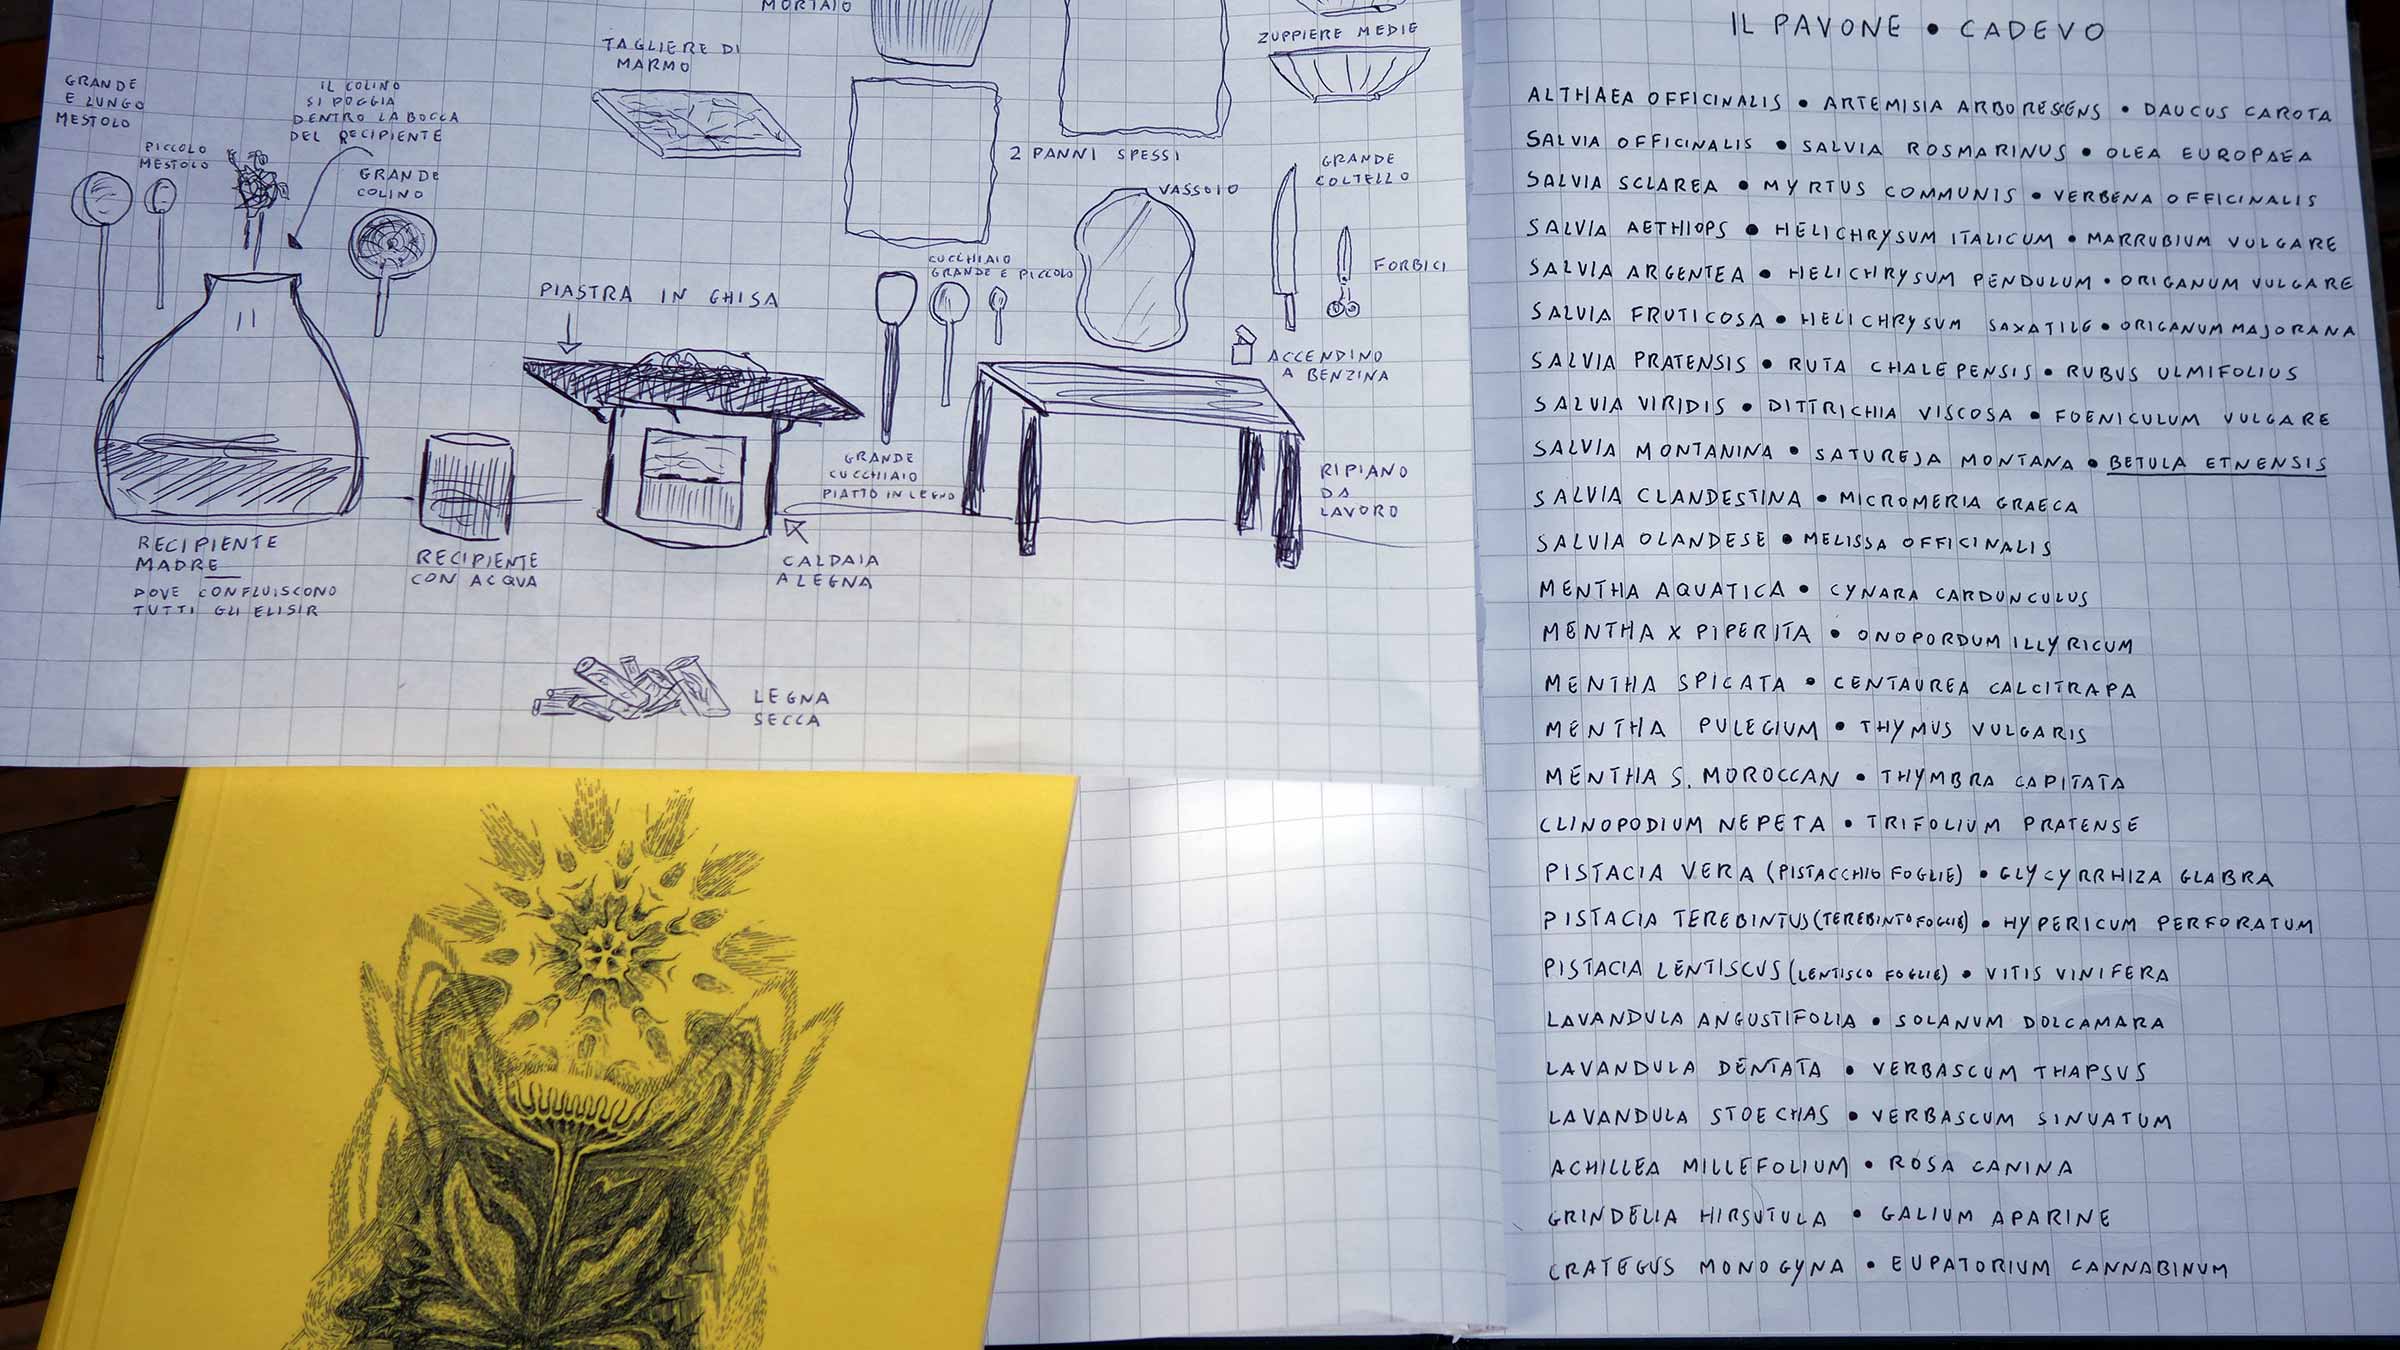 MORTAIO
TAGLIERE DI
MARMO
ZUPPIERE MEDIE
GRANDE
E LUNGO
MESTOLO
IL COLINO
SI POGGIA
DENTRO LA BOCCA
DEL RECIPIENTE
PICCOLO
MESTOLO
GRANDE
COLINO
2 PANNI SPESSI
VASSOIO
GRANDE
COLTELLO
FORBICI
CUCCHIAIO
GRANDE E PICCOLO
PIASTRA IN GHISA
ACCENDINO
A BENZINA
GRANDE
CUCCHIAIO
PIATTO IN LEGNO
RIPIANO
DA
LAVORO
RECIPIENTE
MADRE
DOVE CONFLUISCONO
TUTTI GLI ELISIR
RECIPIENTE
CON ACQUA
CALDAIA
A LEGNA
LEGNA
SECCA
IL PAVONE • CADEVO
ALTHAEA OFFICINALIS • ARTEMISIA ARBORESCENS • DAUCUS CAROTA
SALVIA OFFICINALIS • SALVIA ROSMARINUS • OLEA EUROPAEA
SALVIA SCLAREA • MYRTUS COMMUNIS • VERBENA OFFICINALIS
SALVIA AETHIOPS • HELICHRYSUM ITALICUM • MARRUBIUM VULGARE
SALVIA ARGENTEA • HELICHRYSUM PENDULUM • ORIGANUM VULGARE
SALVIA FRUTICOSA • HELICHRYSUM SAXATILE • ORIGANUM MAJORANA
SALVIA PRATENSIS • RUTA CHALEPENSIS • RUBUS ULMIFOLIUS
SALVIA VIRIDIS • DITTRICHIA VISCOSA • FOENICULUM VULGARE
SALVIA MONTANINA • SATUREJA MONTANA • BETULA ETNENSIS
SALVIA CLANDESTINA • MICROMERIA GRAECA
SALVIA OLANDESE • MELISSA OFFICINALIS
MENTHA AQUATICA • CYNARA CARDUNCULUS
MENTHA X PIPERITA • ONOPORDUM ILLYRICUM
MENTHA SPICATA • CENTAUREA CALCITRAPA
MENTHA PULEGIUM • THYMUS VULGARIS
MENTHA S. MOROCCAN • THYMBRA CAPITATA
CLINOPODIUM NEPETA • TRIFOLIUM PRATENSE
PISTACIA VERA (PISTACCHIO FOGLIE) • GLYCYRRHIZA GLABRA
PISTACIA TEREBINTUS (TEREBINTO FOGLIE) • HYPERICUM PERFORATUM
PISTACIA LENTISCUS (LENTISCO FOGLIE) • VITIS VINIFERA
LAVANDULA ANGUSTIFOLIA • SOLANUM DOLCAMARA
LAVANDULA DENTATA • VERBASCUM THAPSUS
LAVANDULA STOECHAS • VERBASCUM SINUATUM
ACHILLEA MILLEFOLIUM • ROSA CANINA
GRINDELIA HIRSUTULA • GALIUM APARINE
CRATEGUS MONOGYNA • EUPATORIUM CANNABINUM